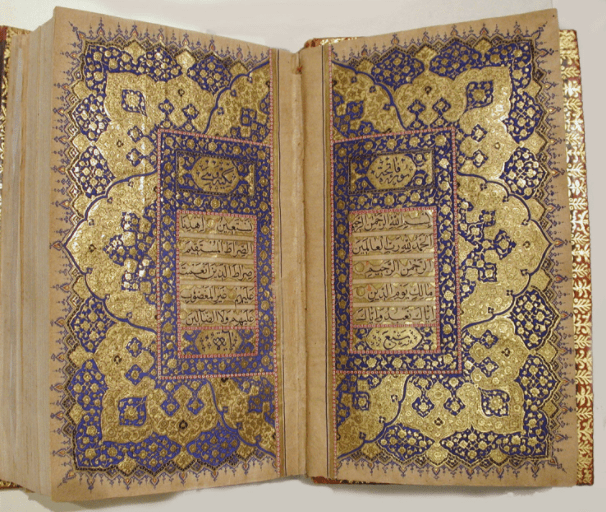 فاتحة
بسم الله الرحمن الرحيم
الحمد لله رب العالمين
الرحمن الرحيم
مالك يوم الدين
اياك نعبد واياك
سبع
نستعين اهدنا
الصراط المستقيم
صراط الذين انعمت
عليهم غير المغضوب
عليهم ولا الضالين